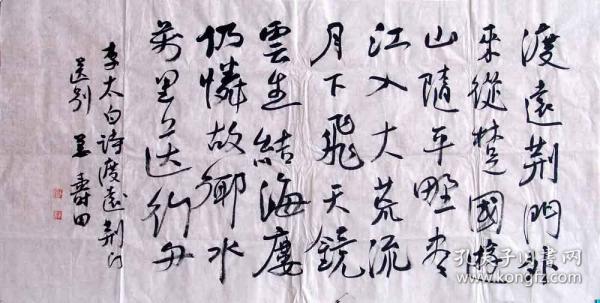 渡遠荆門外
來從楚國遊
山隨平野尽
江入大荒流
月下飛天鏡
雲生結海廔
仍憐故鄉水
萬里送行舟
李太白诗度遠荆门
送别 姜壽田
孔夫子旧书网
www.kongfz.com